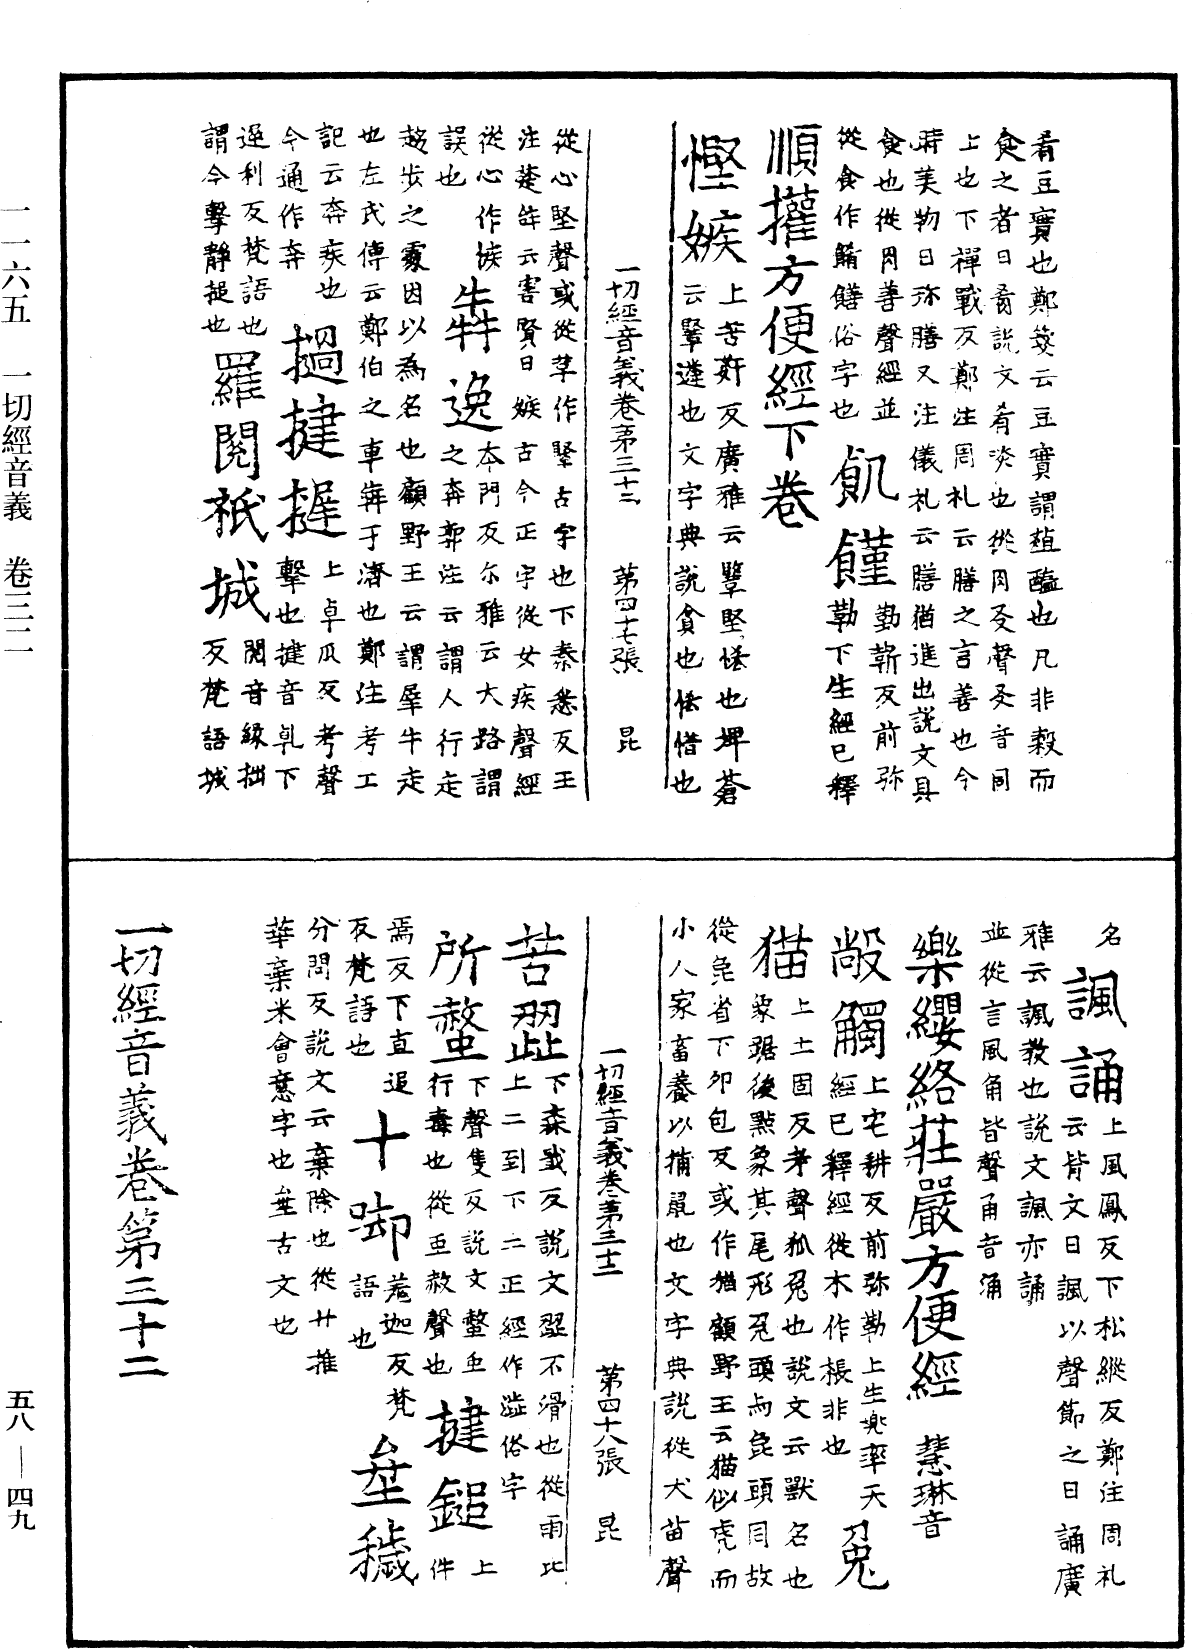 一一六五　一切經音義　卷三二
五八—四九
肴豆實也鄭箋云豆實謂菹醢也凡非穀而
食之者曰肴說文肴啖也從肉爻聲爻音同
上也下禪戰反鄭注周礼云膳之言善也今
時美物曰珎膳又注儀礼云膳猶進出說文具
食也從肉善聲經並
從食作餚饍俗字也
飢饉
勤靳反前弥
勒下生經已釋
順權方便經下卷
慳嫉
上苦姧反廣雅云䋜堅悋也埤蒼
云䋜濏也文字典說貪也悋惜也
一切經音義卷第三十二　第四十七張　昆
從心堅聲或從革作䋜古字也下秦悉反王
注楚辭云害賢曰嫉古今正字從女疾聲經
從心作㤹
誤也
犇逸
本門反尒雅云大路謂
之奔郭注云謂人行走
趍步之處因以為名也顧野王云謂羣牛走
也左氏傳云鄭伯之車犇于濟也鄭注考工
記云奔疾也
今通作奔
撾揵搥
上卓瓜反考聲
擊也揵音乹下
逕利反梵語也
謂今擊靜搥也
羅閱祇城
閱音緣拙
反梵語城
名
諷誦
上風鳳反下松縱反鄭注周礼
云背文曰諷以聲節之曰誦廣
雅云諷教也說文諷亦誦
並從言風甬皆聲甬音涌
樂纓絡莊嚴方便經　慧琳音
敞觸
上宅耕反前弥勒上生兠率天
經已釋經從木作棖非也
兔猫
上土固反考聲狐兔也說文云獸名也
象踞後點象其尾形兔頭与㲋頭同故
從㲋省下卯包反或作猫顧野王云猫似虎而
小人家畜養以捕鼠也文字典說從犬苗聲
一切經音義卷第三十二　第四十八張　昆
苦澀
下森戢反說文澀不滑也從兩止
上二到下二正經作澁俗字
所螫
下聲隻反說文螫虫
行毒也從虫赦聲也
揵鎚
上件
焉反下直追
反梵語也
十㖡
羗迦反梵
語也
坌穢
分問反說文云棄除也從廾推
華棄米會意字也坌古文也
一切經音義卷第三十二